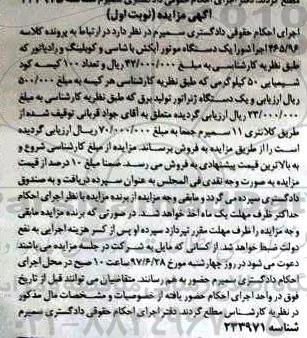 آگهی مزایده (نوبت اول)
اجرای احکام حقوقی دادگستری سمیرم در نظر دارد در ارتباط به پرونده کلاسه
۴۶۵/۹۶ اجرا شورا یک دستگاه موتور آبکش با شاسی و کوپلینگ و رادیاتور که
طبق نظریه کارشناسی به مبلغ ۴۲/۰۰۰/۰۰۰ ریال و تعداد ۱۰۰ کیسه کود
شیمیایی ۵۰ کیلوگرمی که طبق نظریه کارشناسی هر کیسه به مبلغ ۵۰۰/۰۰۰
ریال ارزیابی و یک دستگاه ژنراتور تولید برق که طبق نظریه کارشناسی به مبلغ
۲۳/۰۰۰/۰۰۰ ریال ارزیابی گردیده متعلق به آقای جواد قربانی توقیف شده از
طریق کلانتری ۱۱ سمیرم جمعا به مبلغ ۷۰/۰۰۰/۰۰۰ ریال ارزیابی گردیده
است را از طریق مزایده به فروش برساند. مزایده از مبلغ کارشناسی شروع و
به بالاترین قیمت پیشنهادی به فروش می رسد. ضمنا مبلغ ۱۰ درصد از قیمت
مزایده به صورت وجه نقدی فی المجلس به عنوان سپرده دریافت و به صندوق
دادگستری سپرده می گردد و مابقی وجه مزایده از برنده مزایده با نظر اجرای احکام
حداکثر ظرف مهلت یک ماه اخذ خواهد شد. در صورتی که برنده مزایده مابقی
وجه مزایده را ظرف مهلت مقرر نپردازد سپرده او پس از کسر هزینه اجرایی به نفع
دولت ضبط خواهد شد. از کسانی که مایل به شرکت در جلسه مزایده می باشند
دعوت می شود در روز چهارشنبه مورخ ۹۷/۶/۲۸ ساعت ۱۰ صبح در محل اجرای
احکام دادگستری سمیرم حضور به هم رسانند. متقاضیان می توانند قبل از تاریخ
فوق در واحد اجرای احکام حضور یافته از خصوصیات و مشخصات مال مذکور
در نظریه کارشناس مطلع گردند. دفتر اجرای احکام حقوقی دادگستری سمیرم
شناسه ۲۳۳۹۷۱